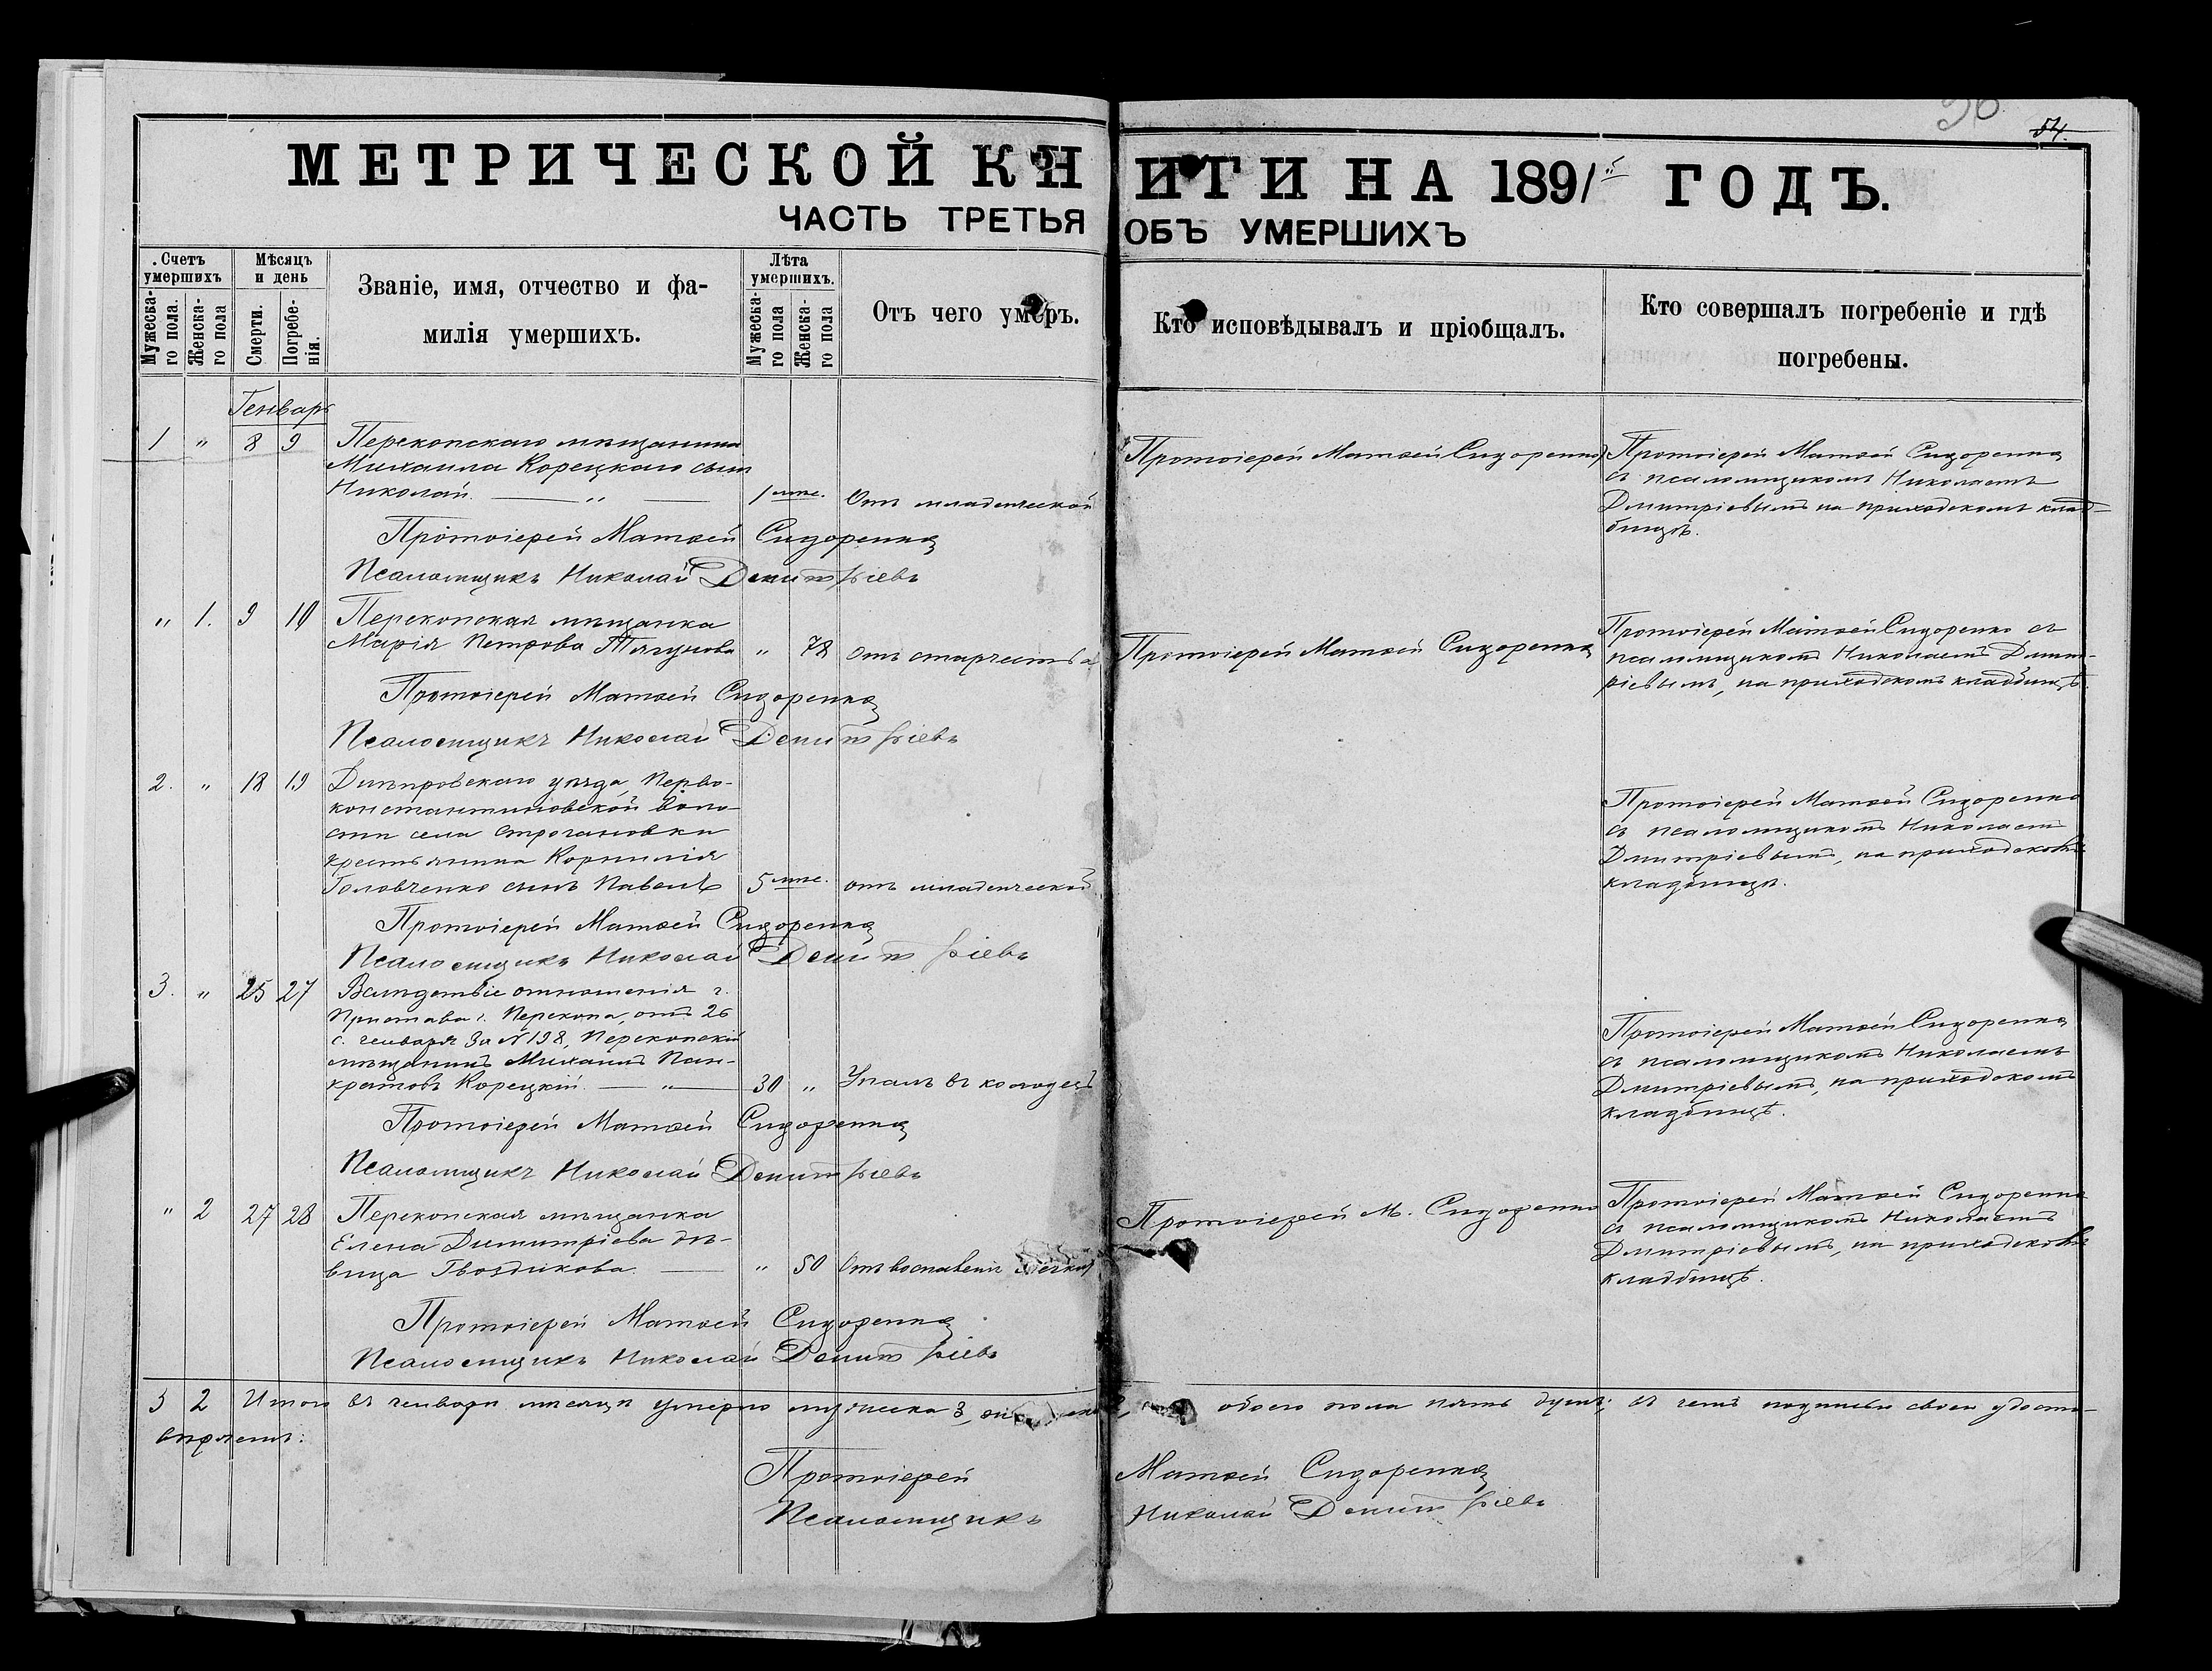 54.
МЕТРИЧЕСКОЙ КНИГИ НА 1891й ГОДЪ.
ЧАСТЬ ТРЕТЬЯ ОБЪ УМЕРШИХЪ
Счетъ умершихъ
Мужеска-го пола.
Женска-го пола
Мѣсяцъ и день
Смерти.
Погребе-нія.
Званіе, имя, отчество и фа-
милія умершихъ.
Лѣта умершихъ.
Мужеска-го пола
Женска-го пола
Отъ чего умеръ.
Кто исповѣдывалъ и пріобщалъ.
Кто совершалъ погребеніе и гдѣ
погребены.
Генварь
1 " 8 9 Перекопскаго мѣщанина
Михаила Корецкаго сынъ
Николай. — " — 1 мѣс. Отъ младенческой
Протоіерей Матѳей Сидоренко
Протоіерей Матѳей Сидоренко
съ псаломщикомъ Николаемъ
Дмитріевымъ на приходскомъ клад-
бищѣ.
Протоіерей Матѳей Сидоренко
Псаломщикъ Николай Димитріевъ
" 1. 9 10 Перекопская мѣщанка
Марія Петрова " 78 Отъ старчества
Протоіерей Матѳей Сидоренко
Протоіерей Матѳей Сидоренко съ
псаломщикомъ Николаемъ Дмит-
ріевымъ, на приходскомъ кладбищѣ.
Протоіерей Матѳей Сидоренко
Псаломщикъ Николай Димитріевъ
2. " 18 19 Днѣпровскаго уѣзда, Перво-
константиновской воло-
сти села Строгановки
крестьянина Корнилія
Головченко сынъ Павелъ 5 мѣс. отъ младенческой
Протоіерей Матѳей Сидоренко
съ псаломщикомъ Николаемъ
Дмитріевымъ, на приходскомъ
кладбищѣ.
Протоіерей Матѳей Сидоренко
Псаломщикъ Николай Димитріевъ
3. " 25 27 Вслѣдствіе отношенія г.
Пристава г. Перекопа, отъ 26
с. генваря за № 198, Перекопскій
мѣщанинъ Михаилъ Пан-
кратовъ Корецкій. — " — 30 " Упалъ въ колодезь
Протоіерей Матѳей Сидоренко
съ псаломщикомъ Николаемъ
Дмитріевымъ, на приходскомъ
кладбищѣ.
Протоіерей Матѳей Сидоренко
Псаломщикъ Николай Димитріевъ
" 2 27 28 Перекопская мѣщанка
Елена Димитріева дѣ-
вица Гвоздикова — " 50 Отъ воспаленія легкихъ
Протоіерей М. Сидоренко
Протоіерей Матѳей Сидоренко
съ псаломщикомъ Николаемъ
Дмитріевымъ, на приходскомъ
кладбищѣ.
Протоіерей Матѳей Сидоренко
Псаломщикъ Николай Димитріевъ
3 2 Итого въ генварѣ мѣсяцѣ умерло мужеска 3, обоего пола пять душъ; въ чемъ подписью своею удосто-
вѣряемъ:
Протоіерей Матѳей Сидоренко
Псаломщикъ Николай Димитріевъ